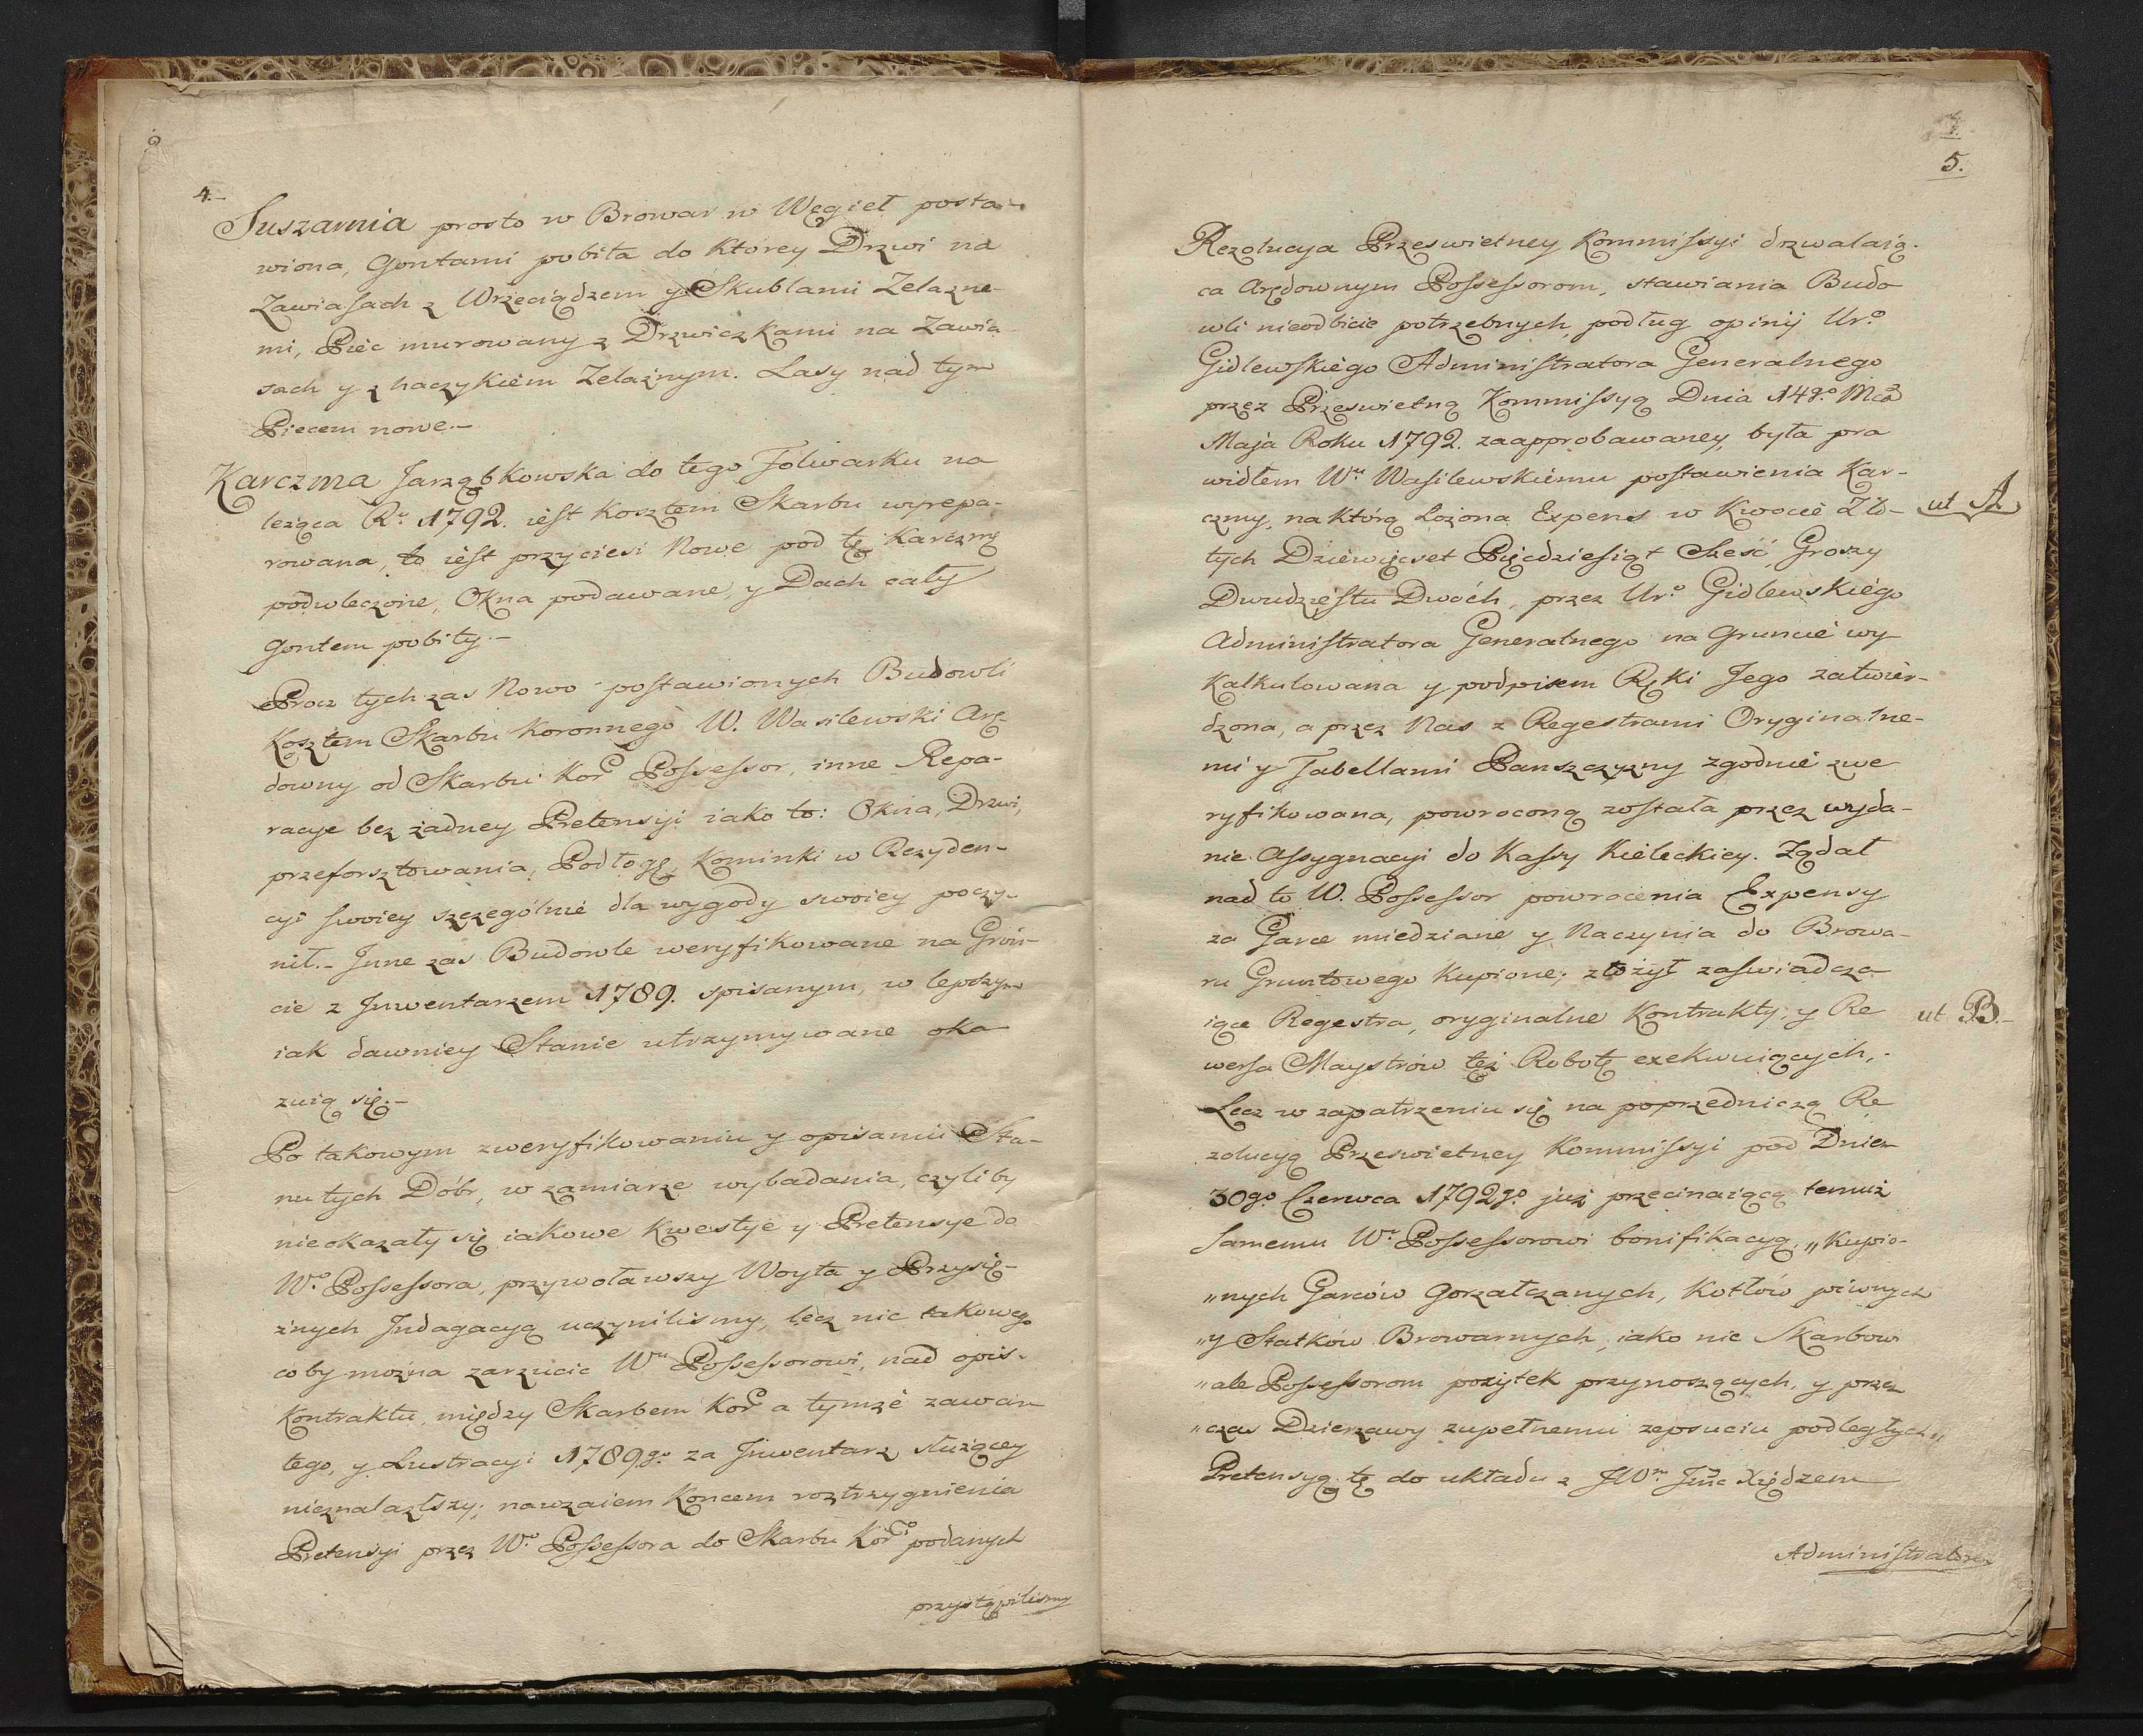 4.
Suszarnia prosto w Browar w Węgieł posta-
wiona, Gontami pobita do którey Drzwi na
Zawiasach z Wrzeciądzem y Skublami Zelazne-
mi, Piec murowany z Drzwiczkami na Zawia
sach y z haczykiem Zelaznym. Lasy nad tym
Piecem nowe.-
Karczma Jarząbkowska do tego Folwarku na
leżąca Ru 1792. iest Kosztem Skarbu wyrepa-
rowana, to iest przyciesi Nowe pod tę Karczmę
podwleczone, Okna podawane, y Dach cały
gontem pobity.-
Procz tych zas Nowo postawionych Budowli
Kosztem Skarbu Koronnego W. Wasilewski Arę-
downy od Skarbu Kor Possessor, inne Repa-
racye bez żadney Pretensyi iako to: Okna, Drzwi,
przeforsztowania, Podłogę, Kominki w Rezyden-
cyi swoiey szczególnie dla wygody swoiey poczy-
nił.- Inne zas Budowle weryfikowane na Gron-
cie z Inwentarzem 1789. spisanym, w lepszym
iak dawniey Stanie utrzymywane oka
zuią się.-
Po takowym zweryfikowaniu y opisaniu Sta-
nu tych Dóbr, w zamiarze wybadania, czyliby
nieokazały się iakowe Kwestye y Pretensye do
Wo Possessora, przywoławszy Woyta y Przysię-
żnych Indagacyą uczyniliśmy, lecz nic takowego
coby można zarzucic Wu Possessorowi, nad opis
Kontraktu, między Skarbem Kor a tymże zawar
tego, y Lustracyi 1789go za Inwentarz służącey
nieznalazłszy; nawzaiem Koncem roztrzygnienia
Pretensyi przez Wo Possessora do Skarbu Koro podanych
przystąpiliśmy
5.
Rezolucya Przeswietney Kommissyi dozwalaią-
ca Arędownym Possessorom, stawiania Budo
wli nieodbicie potrzebnych, podług opinij Uro
Gidlewskiego Administratora Generalnego
przez Przeswietną Kommissyą Dnia 14go Mca
Maja Roku 1792. zaapprobawaney, była pra
widłem Wu Wasilewskiemu postawienia Kar-
czmy, na którą Łożona Expens w Kwocie Zło-
ut A
tych Dziewięcset Pięcdziesiąt Sześć, Groszy
Dwudziestu Dwóch, przez Uro Gidlewskiego
Administratora Generalnego na Gruncie wy
Kalkulowana y podpisem Ręki Jego zatwier-
dzona, a przez Nas z Regestrami Oryginalne-
mi y Tabellami Panszczyzny zgodnie zwe
ryfikowana, powroconą została przez wyda-
nie Assygnacyi do Kassy Kieleckiey. Ządał
nad to W. Possessor powrocenia Expensy
za Garce miedziane y Naczynia do Browa-
ru Gruntowego Kupione; złożył zaswiadcza-
iące Regestra, oryginalne Kontrakty, y Re
ut B.-
wersa Maystrów tęż Robotę exekwuiących,
Lecz w zapatrzeniu się na poprzedniczą Re
zolucyą Przeswietney Kommissyi pod Dniem
30go Czerwca 1792go już przecinaiącą temuż
samemu Wu Possessorowi bonifikacyą, „Kupio-
„nych Garców gorzałczanych, Kotłów piwnych
„y Statków Browarnych, iako nie Skarbow
„ale Possessorom pożytek przynoszących, y przez
„czas Dzierżawy zupełnemu zepsuciu podległych„
Pretensyą tę do układu z JWm Jmc Xiędzem
Administratorem